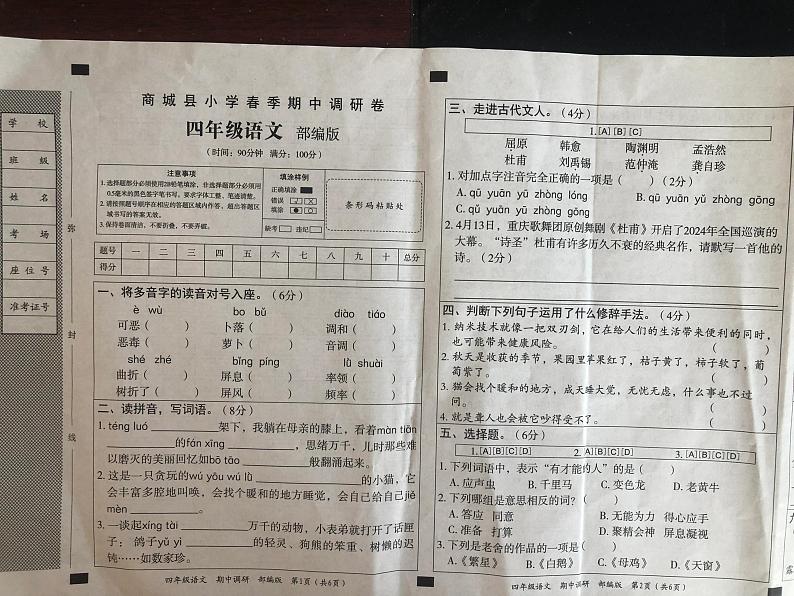 学 校
班 级
姓 名
考 场
座 位 号
准考证号
弥
封
线
商城县小学春季期中调研卷
四年级语文 部编版
(时间：90分钟 满分：100分)
注意事项
1.选择题部分必须使用2B铅笔填涂，非选择题部分必须用
0.5毫米的黑色签字笔书写。要求字体工整、笔迹清楚。
2.请按照题号顺序在相应的答题区域内作答，超出答题区
域书写的答案无效。
3.保持卷面清洁，不要折叠，不要弄破。
填涂样例
正确填涂
错误
填涂
缺考 违纪
条形码粘贴处
题号 一 二 三 四 五 六 七 八 九 十 总分
得分
一、将多音字的读音对号入座。(6分)
è wù bo bǔ diào tiáo
可恶( ) 卜落( ) 调和( )
恶毒( ) 萝卜( ) 音调( )
shé zhé bǐng píng lǜ shuài
曲折( ) 屏息( ) 率领( )
树折了( ) 屏风( ) 频率( )
二、读拼音，写词语。(8分)
1. téng luó ________架下，我躺在母亲的膝上，看着màn tiān
________的fán xīng ________，思绪万千，儿时那些难
以磨灭的美丽回忆如bō tāo ________般翻涌起来。
2. 这是一只贪玩的wú yōu wú lǜ ________的小猫，它
会丰富多腔地叫唤，会找个暖和的地方睡觉，会自己给自己jiě
mèn ________。
3. 一谈起xíng tài ________万千的动物，小表弟就打开了话匣
子： 鸽子yǔ yì ________的轻灵、狗熊的笨重、树懒的迟
钝……如数家珍。
四年级语文 期中调研 部编版 第1页(共6页)
三、走进古代文人。(4分)
1. [A] [B] [C]
屈原 韩愈 陶渊明 孟浩然
杜甫 刘禹锡 范仲淹 龚自珍
1. 对加点字注音完全正确的一项是( )(2分)
A. qū yuān yū zhòng lóng B. qū yuān yǔ zhòng gōng
C. qū yuān yū zhòng gōng
2. 4月13日，重庆歌舞团原创舞剧《杜甫》开启了2024年全国巡演的
大幕。“诗圣”杜甫有许多历久不衰的经典名作，请默写一首他的
诗。(2分)
四、判断下列句子运用了什么修辞手法。(4分)
1. 纳米技术就像一把双刃剑，它在给人们的生活带来便利的同时，
也可能带来健康风险。 ( )
2. 秋天是收获的季节，果园里苹果红了，桔子黄了，柿子软了，葡
萄紫了。 ( )
3. 猫会找个暖和的地方，成天睡大觉，无忧无虑，什么事也不过
问。 ( )
4. 就是聋人也会被它吵得受不了。 ( )
五、选择题。(6分)
1. [A] [B] [C] [D] 2. [A] [B] [C] [D] 3. [A] [B] [C] [D]
1. 下列词语中，表示“有才能的人”的是( )
A. 应声虫 B. 千里马 C. 变色龙 D. 老黄牛
2. 下列哪组是意思相反的词？( )
A. 答应 同意 B. 无能为力 得心应手
C. 准备 打算 D. 聚精会神 屏息凝视
3. 下列是老舍的作品的一项是( )
A.《繁星》 B.《白鹅》 C.《母鸡》 D.《天窗》
四年级语文 期中调研 部编版 第2页(共6页)